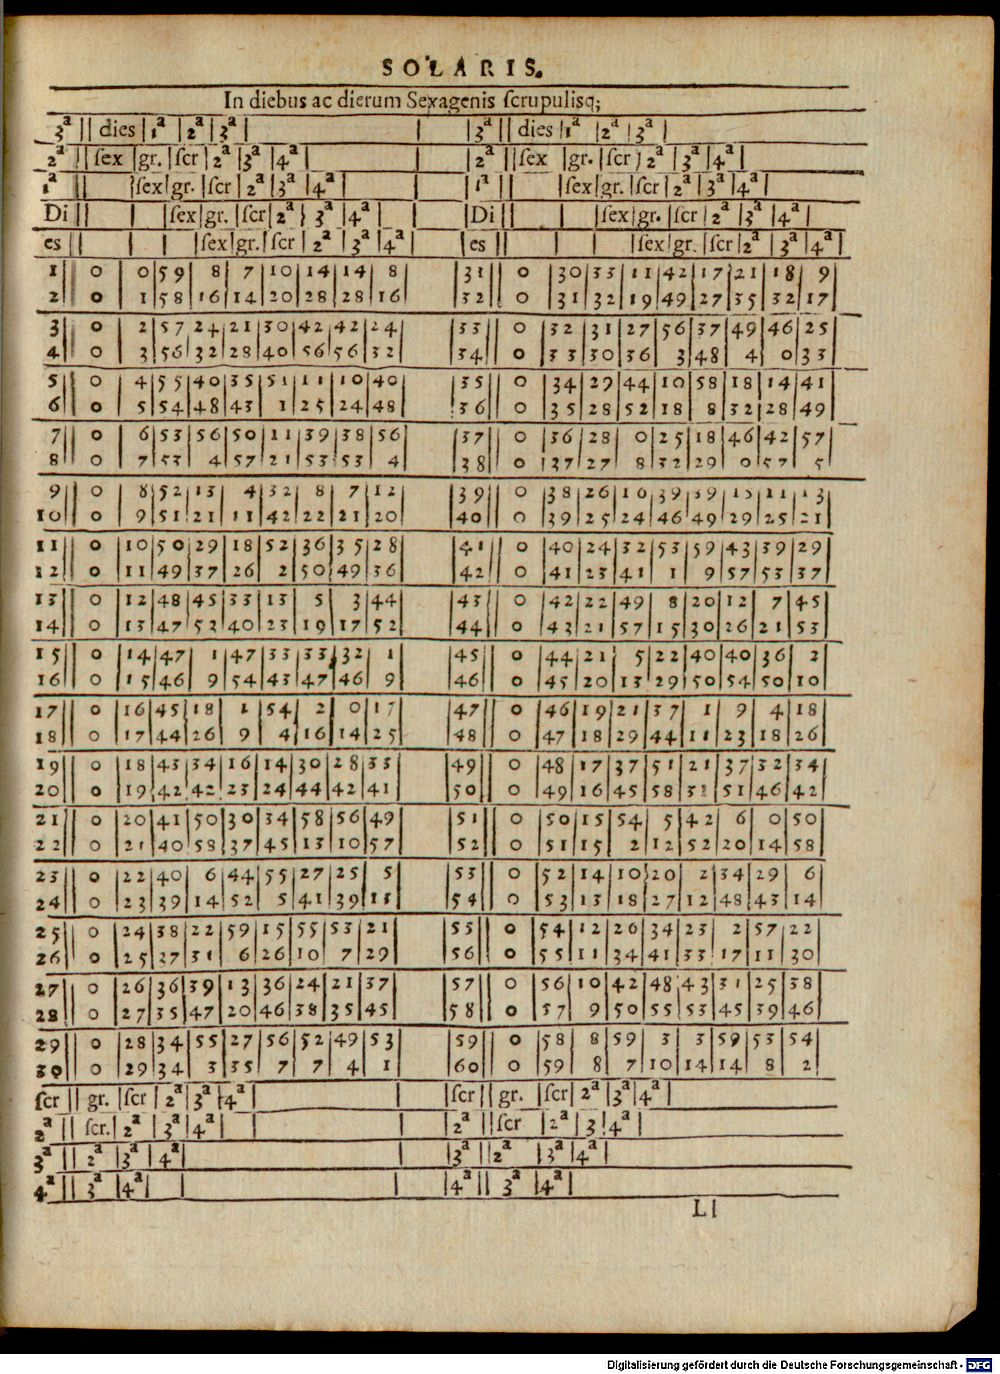 SOLARIS.
In diebus ac dierum Sexagenis scrupulisq;
3ª || dies | 1ª | 2ª | 3ª | | | 3ª || dies | 1ª | 2ª | 3ª |
2ª || ſex | gr. | ſcr | 2ª | 3ª | 4ª | | 2ª || ſex | gr. | ſcr | 2ª | 3ª | 4ª |
1ª || | ſex | gr. | ſcr | 2ª | 3ª | 4ª | | 1ª || | ſex | gr. | ſcr | 2ª | 3ª | 4ª |
Di || | | ſex | gr. | ſcr | 2ª | 3ª | 4ª | | Di || | | ſex | gr. | ſcr | 2ª | 3ª | 4ª |
es || | | | ſex | gr. | ſcr | 2ª | 3ª | 4ª | es || | | | ſex | gr. | ſcr | 2ª | 3ª | 4ª |
1 || 0 | 0 | 59 | 8 | 7 | 10 | 14 | 14 | 8 | 31 || 0 | 30 | 33 | 11 | 42 | 17 | 21 | 18 | 9
2 || 0 | 1 | 58 | 16 | 14 | 20 | 28 | 28 | 16 | 32 || 0 | 31 | 32 | 19 | 49 | 27 | 35 | 32 | 17
3 || 0 | 2 | 57 | 24 | 21 | 30 | 42 | 42 | 24 | 33 || 0 | 32 | 31 | 27 | 56 | 37 | 49 | 46 | 25
4 || 0 | 3 | 56 | 32 | 28 | 40 | 56 | 56 | 32 | 34 || 0 | 33 | 30 | 36 | 3 | 48 | 4 | 0 | 33
5 || 0 | 4 | 55 | 40 | 35 | 51 | 11 | 10 | 40 | 35 || 0 | 34 | 29 | 44 | 10 | 58 | 18 | 14 | 41
6 || 0 | 5 | 54 | 48 | 43 | 1 | 25 | 24 | 48 | 36 || 0 | 35 | 28 | 52 | 18 | 8 | 32 | 28 | 49
7 || 0 | 6 | 53 | 56 | 50 | 11 | 39 | 38 | 56 | 37 || 0 | 36 | 28 | 0 | 25 | 18 | 46 | 42 | 57
8 || 0 | 7 | 53 | 4 | 57 | 21 | 53 | 53 | 4 | 38 || 0 | 37 | 27 | 8 | 32 | 29 | 0 | 57 | 5
9 || 0 | 8 | 52 | 13 | 4 | 32 | 8 | 7 | 12 | 39 || 0 | 38 | 26 | 16 | 39 | 39 | 15 | 11 | 13
10 || 0 | 9 | 51 | 21 | 11 | 42 | 22 | 21 | 20 | 40 || 0 | 39 | 25 | 24 | 46 | 49 | 29 | 25 | 21
11 || 0 | 10 | 50 | 29 | 18 | 52 | 36 | 35 | 28 | 41 || 0 | 40 | 24 | 32 | 53 | 59 | 43 | 39 | 29
12 || 0 | 11 | 49 | 37 | 26 | 2 | 50 | 49 | 36 | 42 || 0 | 41 | 23 | 41 | 1 | 9 | 57 | 53 | 37
13 || 0 | 12 | 48 | 45 | 33 | 13 | 5 | 3 | 44 | 43 || 0 | 42 | 22 | 49 | 8 | 20 | 12 | 7 | 45
14 || 0 | 13 | 47 | 53 | 40 | 23 | 19 | 17 | 52 | 44 || 0 | 43 | 21 | 57 | 15 | 30 | 26 | 21 | 53
15 || 0 | 14 | 47 | 1 | 47 | 33 | 33 | 32 | 1 | 45 || 0 | 44 | 21 | 5 | 22 | 40 | 40 | 36 | 2
16 || 0 | 15 | 46 | 9 | 54 | 43 | 47 | 46 | 9 | 46 || 0 | 45 | 20 | 13 | 29 | 50 | 54 | 50 | 10
17 || 0 | 16 | 45 | 18 | 1 | 54 | 2 | 0 | 17 | 47 || 0 | 46 | 19 | 21 | 37 | 1 | 9 | 4 | 18
18 || 0 | 17 | 44 | 26 | 9 | 4 | 16 | 14 | 25 | 48 || 0 | 47 | 18 | 29 | 44 | 11 | 23 | 18 | 26
19 || 0 | 18 | 43 | 34 | 16 | 14 | 30 | 28 | 33 | 49 || 0 | 48 | 17 | 37 | 51 | 21 | 37 | 32 | 34
20 || 0 | 19 | 42 | 42 | 23 | 24 | 44 | 42 | 41 | 50 || 0 | 49 | 16 | 45 | 58 | 31 | 51 | 46 | 42
21 || 0 | 20 | 41 | 50 | 30 | 34 | 58 | 56 | 49 | 51 || 0 | 50 | 15 | 54 | 5 | 42 | 6 | 0 | 50
22 || 0 | 21 | 40 | 58 | 37 | 45 | 13 | 10 | 57 | 52 || 0 | 51 | 15 | 2 | 12 | 52 | 20 | 14 | 58
23 || 0 | 22 | 40 | 6 | 44 | 55 | 27 | 25 | 5 | 53 || 0 | 52 | 14 | 10 | 20 | 2 | 34 | 29 | 6
24 || 0 | 23 | 39 | 14 | 52 | 5 | 41 | 39 | 13 | 54 || 0 | 53 | 13 | 18 | 27 | 12 | 48 | 43 | 14
25 || 0 | 24 | 38 | 22 | 59 | 15 | 55 | 53 | 21 | 55 || 0 | 54 | 12 | 26 | 34 | 23 | 2 | 57 | 22
26 || 0 | 25 | 37 | 31 | 6 | 26 | 10 | 7 | 29 | 56 || 0 | 55 | 11 | 34 | 41 | 33 | 17 | 11 | 30
27 || 0 | 26 | 36 | 39 | 13 | 36 | 24 | 21 | 37 | 57 || 0 | 56 | 10 | 42 | 48 | 43 | 31 | 25 | 38
28 || 0 | 27 | 35 | 47 | 20 | 46 | 38 | 35 | 45 | 58 || 0 | 57 | 9 | 50 | 55 | 53 | 45 | 39 | 46
29 || 0 | 28 | 34 | 55 | 27 | 56 | 52 | 49 | 53 | 59 || 0 | 58 | 8 | 59 | 3 | 3 | 59 | 53 | 54
30 || 0 | 29 | 34 | 3 | 35 | 7 | 7 | 4 | 1 | 60 || 0 | 59 | 8 | 7 | 10 | 14 | 14 | 8 | 2
ſcr || gr. | ſcr | 2ª | 3ª | 4ª | | ſcr || gr. | ſcr | 2ª | 3ª | 4ª |
2ª || ſcr. | 2ª | 3ª | 4ª | | | 2ª || ſcr | 2ª | 3 | 4ª |
3ª || 2ª | 3ª | 4ª | | 3ª || 2ª | 3ª | 4ª |
4ª || 3ª | 4ª | | | 4ª || 3ª | 4ª |
Ll
Digitalisierung gefördert durch die Deutsche Forschungsgemeinschaft - DFG